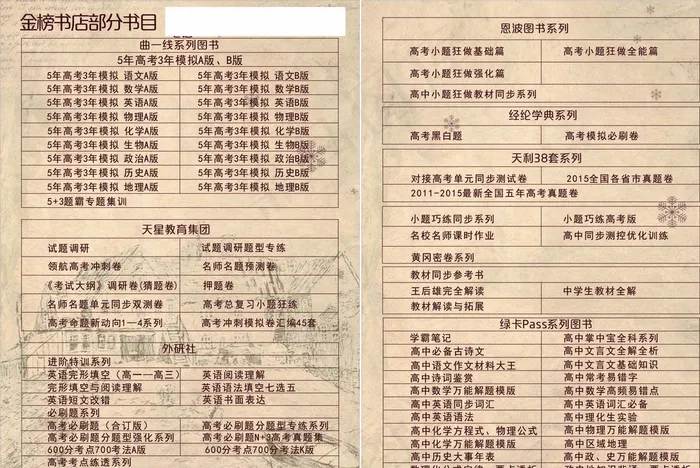 金榜书店部分书目
曲一线系列图书
5年高考3年模拟A版、B版
5年高考3年模拟 语文A版 5年高考3年模拟 语文B版
5年高考3年模拟 数学A版 5年高考3年模拟 数学B版
5年高考3年模拟 英语A版 5年高考3年模拟 英语B版
5年高考3年模拟 物理A版 5年高考3年模拟 物理B版
5年高考3年模拟 化学A版 5年高考3年模拟 化学B版
5年高考3年模拟 生物A版 5年高考3年模拟 生物B版
5年高考3年模拟 政治A版 5年高考3年模拟 政治B版
5年高考3年模拟 历史A版 5年高考3年模拟 历史B版
5年高考3年模拟 地理A版 5年高考3年模拟 地理B版
5+3题霸专题集训
天星教育集团
试题调研 试题调研题型专练
领航高考冲刺卷 名师名题预测卷
《考试大纲》调研卷(猜题卷) 押题卷
名师名题单元同步双测卷 高考总复习小题狂练
高考命题新动向1—4系列 高考冲刺模拟卷汇编45套
外研社
进阶特训系列
英语完形填空（高一—高三） 英语阅读理解
完形填空与阅读理解 英语语法填空七选五
英语短文改错 英语书面表达
必刷题系列
高考必刷题（合订版） 高考必刷题分题型专练系列
高考必刷题分题型强化系列 高考必刷题N+3高考真题集
600分考点700考法A版 600分考点700考法K版
高考考点练透系列
恩波图书系列
高考小题狂做基础篇 高考小题狂做全能篇
高考小题狂做强化篇
高中小题狂做教材同步系列
经纶学典系列
高考黑白题 高考模拟必刷卷
天利38套系列
对接高考单元同步测试卷 2015全国各省市真题卷
2011-2015最新全国五年高考真题卷
小题巧练同步系列 小题巧练高考版
名校名师课时作业 高中同步测控优化训练
黄冈密卷系列
教材同步参考书
王后雄完全解读 中学生教材全解
教材解读与拓展
绿卡Pass系列图书
学霸笔记 高中掌中宝全科系列
高中必备古诗文 高中文言文全解全析
高中语文作文材料大王 高中文言文基础知识
高中诗词鉴赏 高中常考易错字
高中数学万能解题模版 高中数学高频易错点
高中英语同步词汇 高中英语词汇必备
高中英语语法 高中理化生实验
高中化学方程式、物理公式 高中区域地理
高中化学万能解题模版 高中政、史万能解题模版
高中历史大事年表